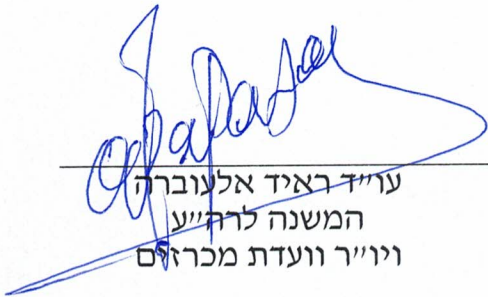 עו״ד ראיד אלעוברה
המשנה לרה״ע
ויו״ר וועדת מכרזים